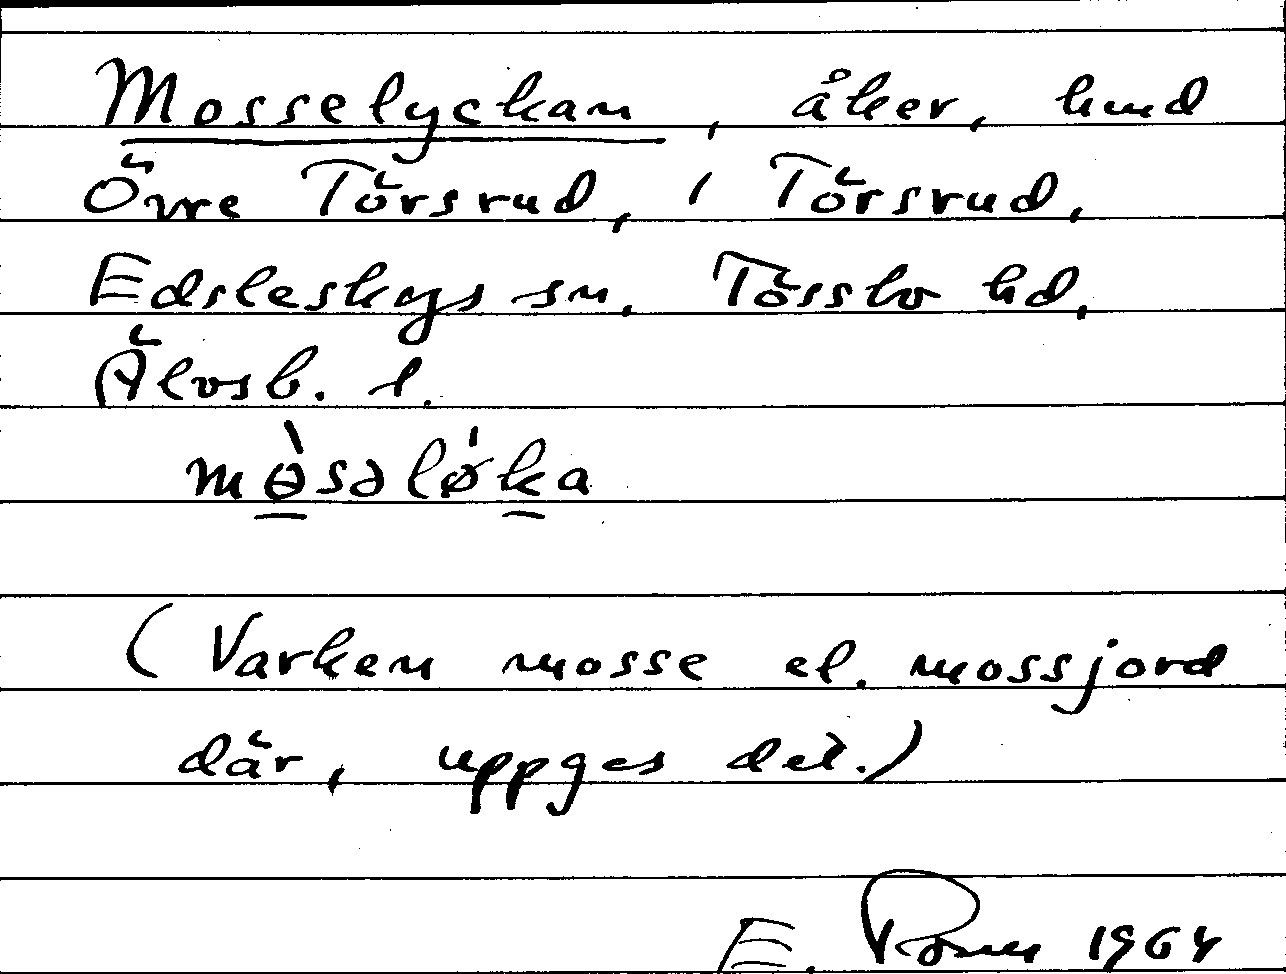 Mosselyckan, åker, hmd
Övre Törsrud, i Törsrud,
Edsleskogs sn, Tössbo hd,
Älvsb. l.
mɵ̀səlø̍ka
(Varken mosse el. mossjord
där, uppges det.)
E. 1964